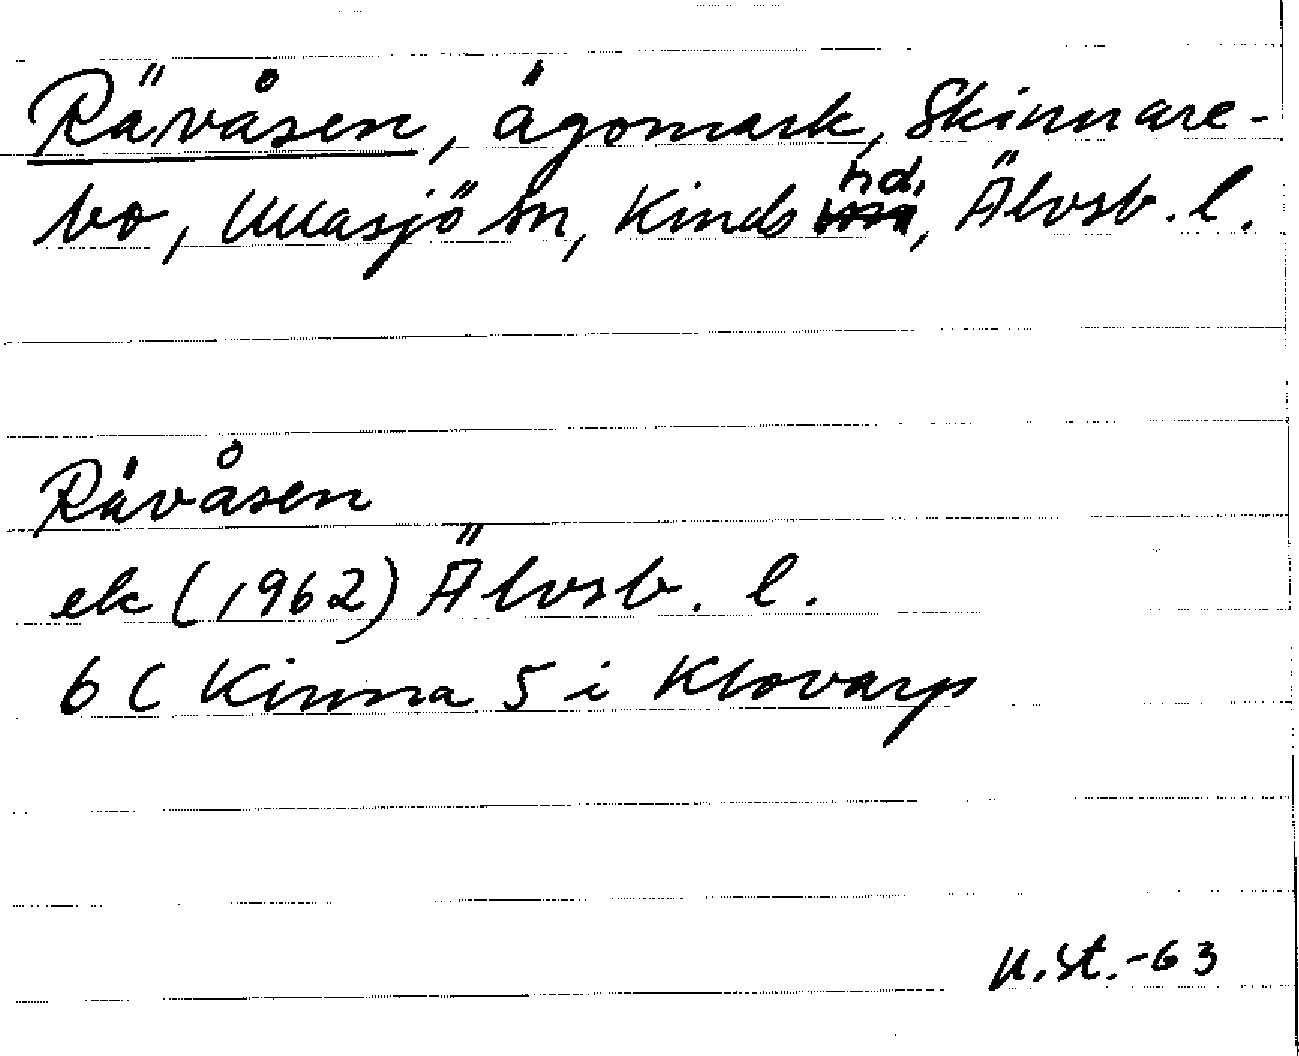 Rävåsen, ägomark, Skinnare-
bo, Ullasjö sn, Kinds hd, Älvsb. l.
Rävåsen
ek (1962) Älvsb. l.
6 C Kinna 5 i Klovarp
U.St.-63